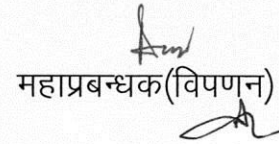 महाप्रबन्धक(विपणन)